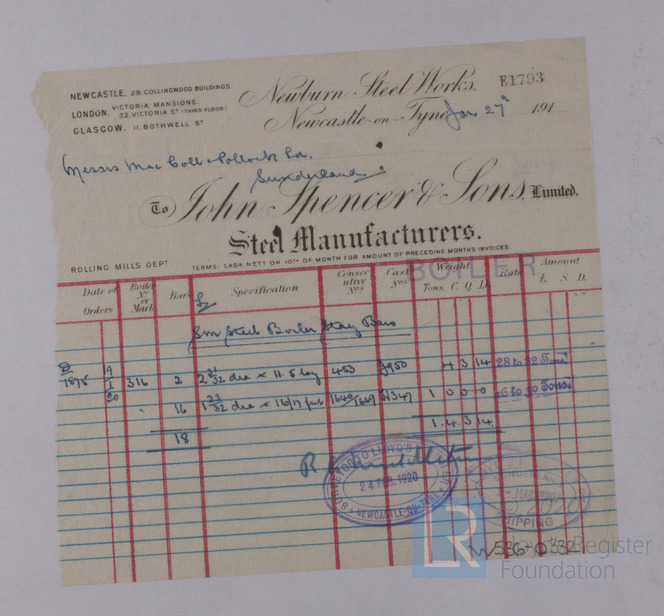 NEWCASTLE. 29 COLLINGWOOD BUILDINGS
LONDON. VICTORIA MANSIONS. 32, VICTORIA ST (THIRD FLOOR)
GLASGOW. 11, BOTHWELL ST
Newburn Steel Works, E1793
Newcastle-on-Tyne Jan 27 191
Messrs Mac Coll & Pollock Ld.
Sunderland
To John Spencer & Sons, Limited.
Steel Manufacturers.
ROLLING MILLS DEPT
TERMS: CASH NETT ON 10TH OF MONTH FOR AMOUNT OF PRECEDING MONTHS INVOICES
BOILER
Date of Orders Boiler No or Mark Bars Specification Consecutive Nos Cast Nos Weight Tons. C. Q. Lb Rate Amount £. S. D.
Sm Steel Boiler Stay Bars
9 1 20 316 2 2 31/32 dia x 11.5 long 453 4 3 14 28 to 32 Tons
16 1 23/32 dia x 16/17 feet 1 0 0 0 26 to 30 Tons
18 1. 4. 3 14
LLOYD'S
24 FEB. 1920
NEWCASTLE-ON-TYNE
SHIPPING
LR
Lloyd's Register
Foundation